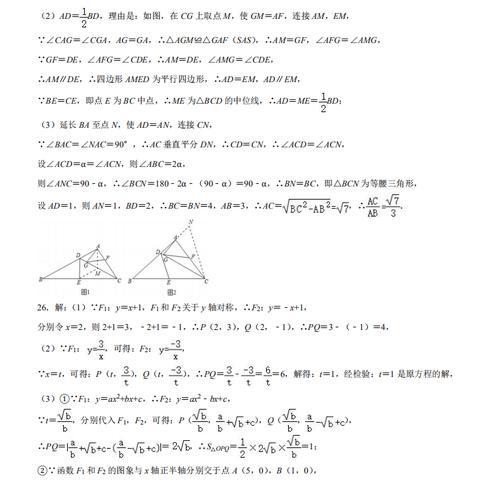 （2）AD=1/2BD，理由是：如图，在 CG 上取点 M，使 GM=AF，连接 AM，EM，
∵∠CAG=∠CGA，AG=GA，∴△AGM≌△GAF（SAS），∴AM=GF，∠AFG=∠AMG，
∵GF=DE，∠AFG=∠CDE，∴AM=DE，∠AMG=∠CDE，
∴AM∥DE，∴四边形 AMED 为平行四边形，∴AD=EM，AD∥EM，
∵BE=CE，即点 E 为 BC 中点，∴ME 为△BCD 的中位线，∴AD=ME=1/2BD；
（3）延长 BA 至点 N，使 AD=AN，连接 CN，
∵∠BAC=∠NAC=90°，∴AC 垂直平分 DN，∴CD=CN，∴∠ACD=∠ACN，
设∠ACD=α=∠ACN，则∠ABC=2α，
则∠ANC=90﹣α，∴∠BCN=180﹣2α﹣（90﹣α）=90﹣α，∴BN=BC，即△BCN 为等腰三角形，
设 AD=1，则 AN=1，BD=2，∴BC=BN=4，AB=3，∴AC=√(BC²-AB²)=√7，∴AC/AB=√7/3．
N
A
D
F
G
M
B
E
C
图1
A
D
F
G
B
E
C
图2
26. 解：（1）∵F₁：y=x+1，F₁ 和 F₂ 关于 y 轴对称，∴F₂：y=﹣x+1，
分别令 x=2，则 2+1=3，﹣2+1=﹣1，∴P（2，3），Q（2，﹣1），∴PQ=3﹣（﹣1）=4，
（2）∵F₁：y=3/x，可得：F₂：y=-3/x，
∵x=t，可得：P（t，3/t），Q（t，-3/t），∴PQ=3/t﹣-3/t=6/t=6，解得：t=1，经检验：t=1 是原方程的解，
（3）①∵F₁：y=ax²+bx+c，∴F₂：y=ax²﹣bx+c，
∵t=√b/b，分别代入 F₁，F₂，可得：P（√b/b，a/b+√b+c），Q（√b/b，a/b-√b+c），
∴PQ=|a/b+√b+c-(a/b-√b+c)|=2√b，∴S△OPQ=1/2×2√b×√b/b=1；
②∵函数 F₁ 和 F₂ 的图象与 x 轴正半轴分别交于点 A（5，0），B（1，0），